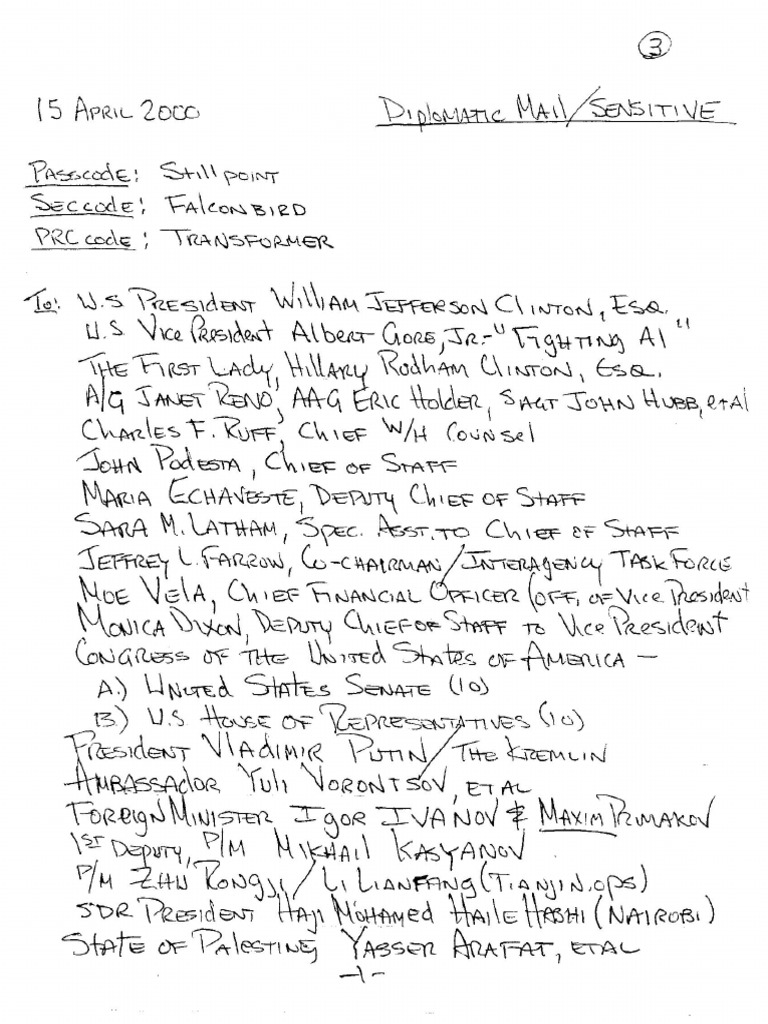 3
15 April 2000 Diplomatic Mail/Sensitive
Passcode: Stillpoint
Seccode: Falconbird
PRC code: Transformer
To: U.S President William Jefferson Clinton, Esq.
U.S Vice President Albert Gore, Jr.-"Fighting Al"
The First Lady, Hillary Rodham Clinton, Esq.
A/G Janet Reno, AAG Eric Holder, SAGT John Hubb, et al
Charles F. Ruff, Chief W/H Counsel
John Podesta, Chief of Staff
Maria Echaveste, Deputy Chief of Staff
Sara M. Latham, Spec. Asst. to Chief of Staff
Jeffrey L. Farrow, Co-chairman/Interagency Task Force
Moe Vela, Chief Financial Officer (Off. of Vice President
Monica Dixon, Deputy Chief of Staff to Vice President
Congress of the United States of America —
A.) United States Senate (10)
B) U.S House of Representatives (10)
President Vladimir Putin/The Kremlin
Ambassador Yuli Vorontsov, et al
Foreign Minister Igor Ivanov & Maxim Primakov
1st Deputy, P/M Mikhail Kasyanov
P/M Zhu Rongji/Li Lianfang (Tianjin.ops)
SDR President Haji Mohamed Haile Hashi (Nairobi)
State of Palestine, Yasser Arafat, et al
-1-